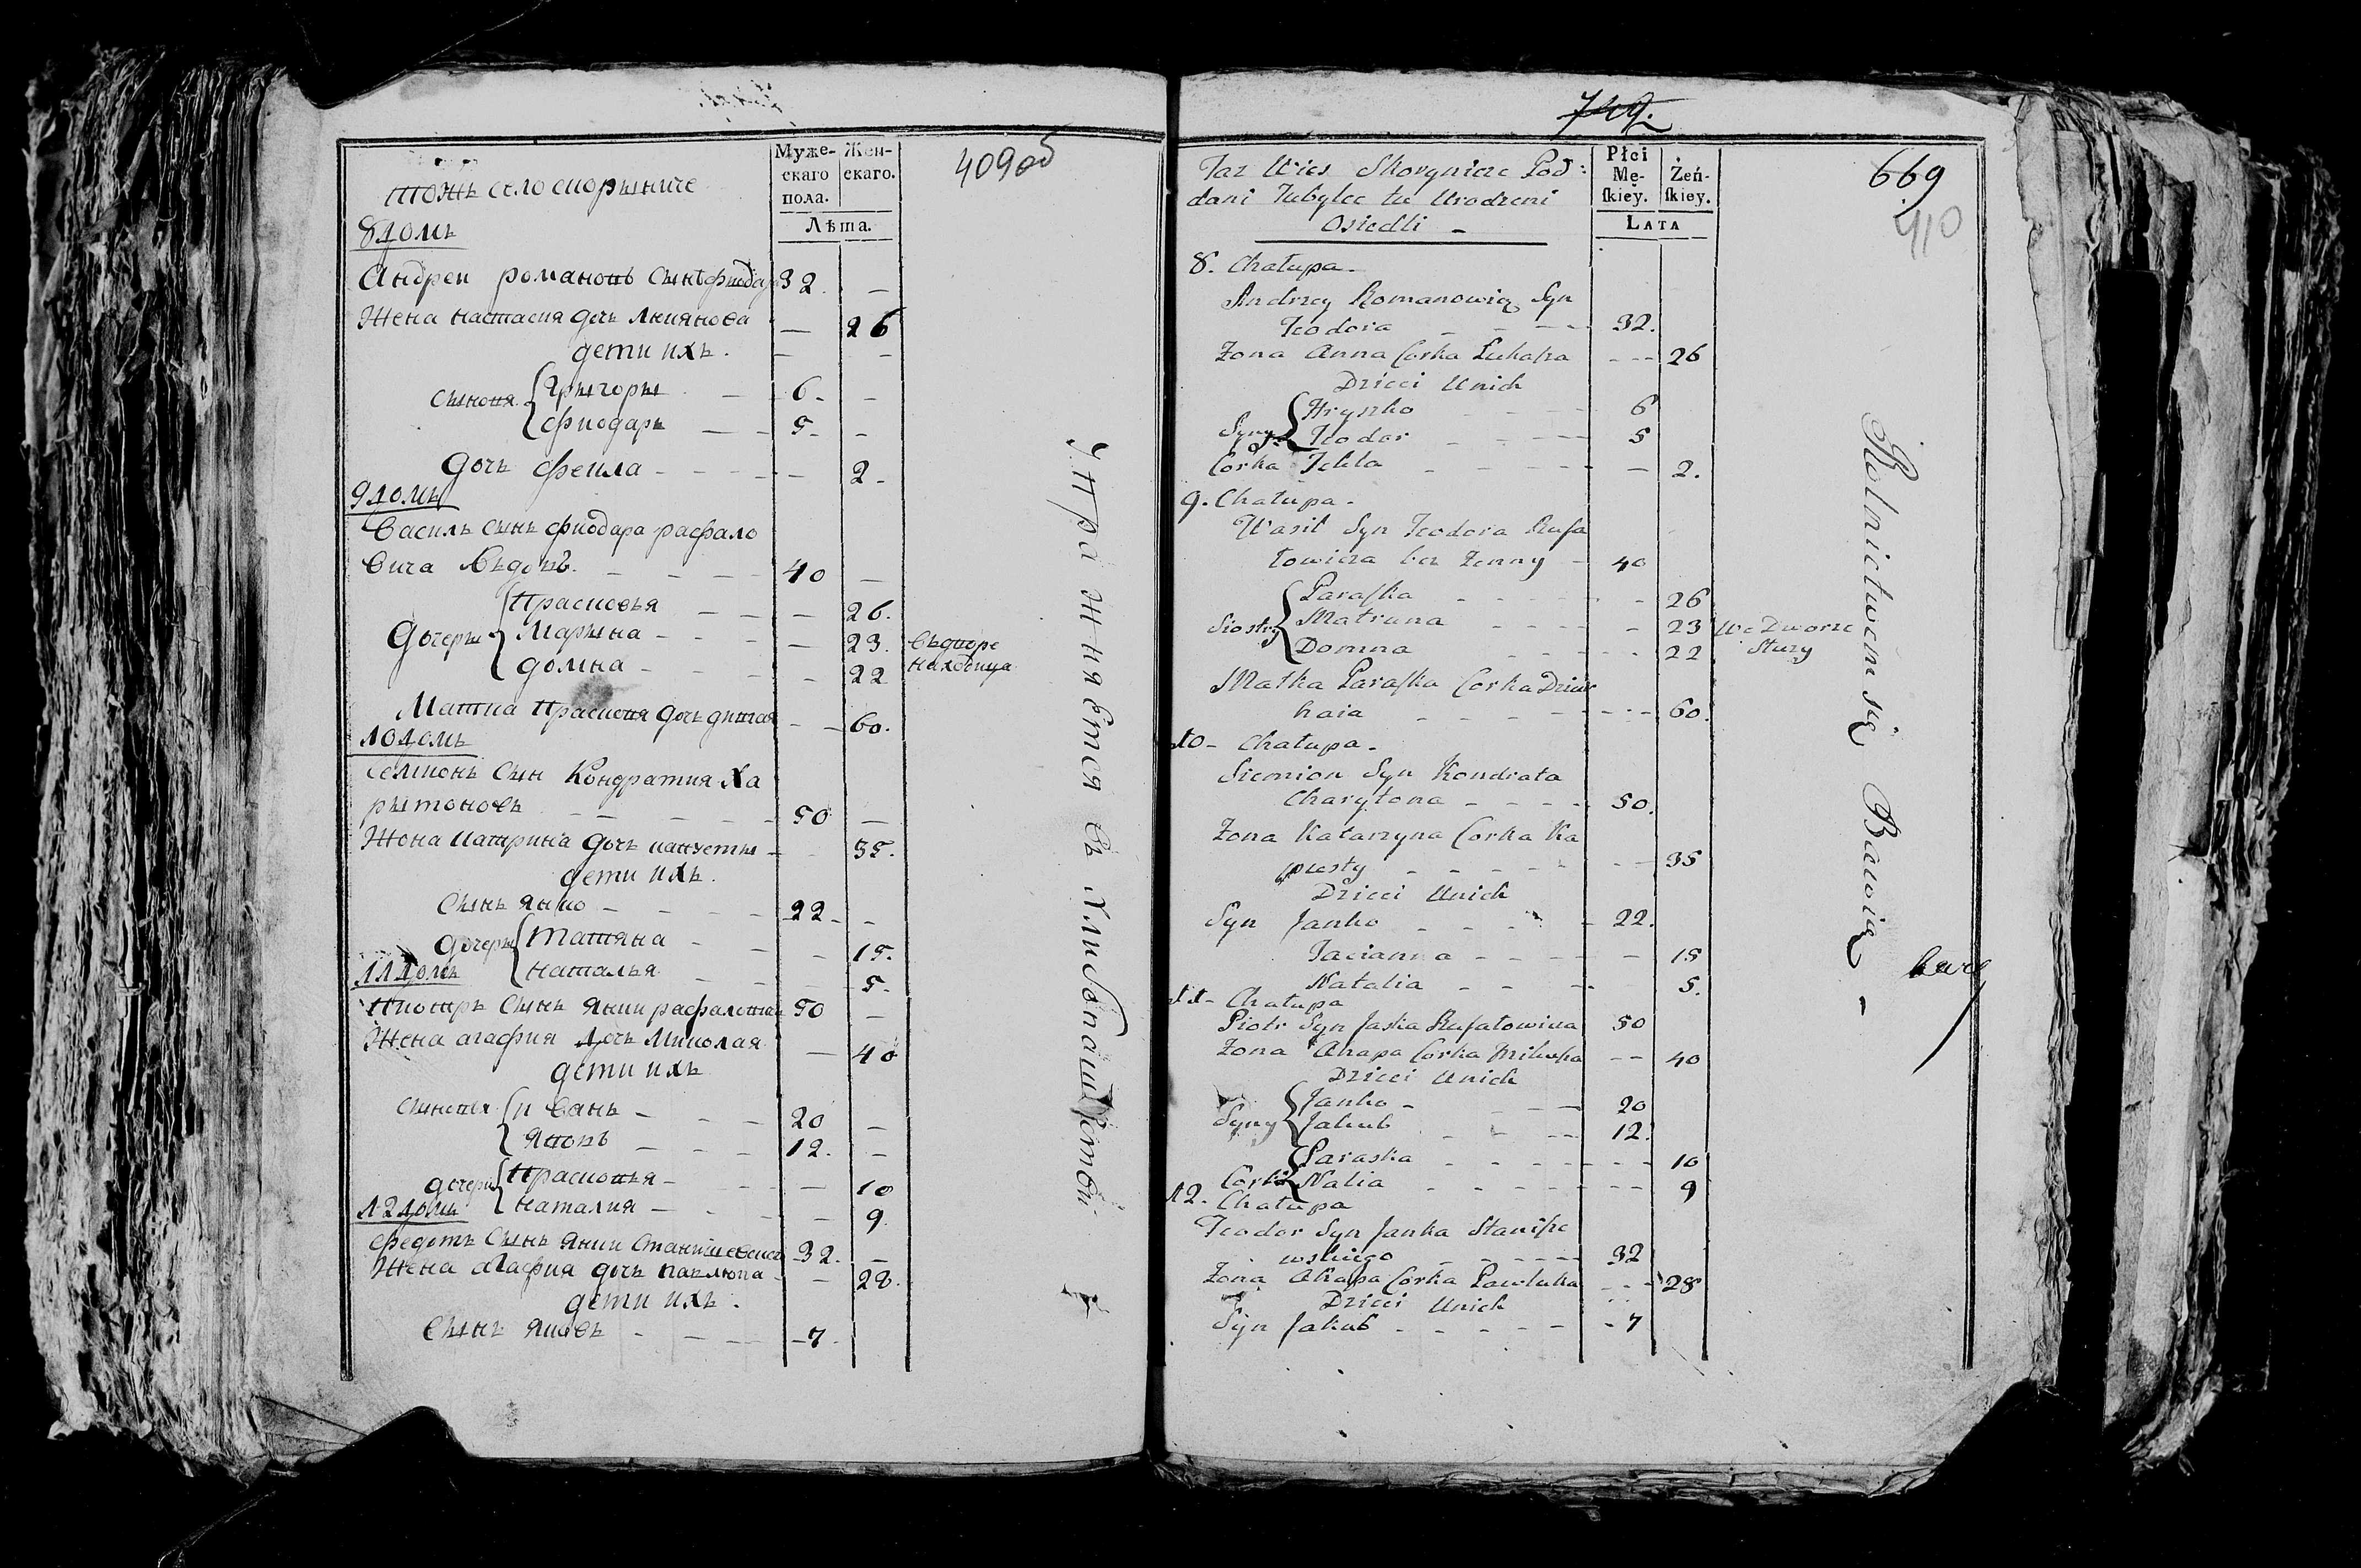 тожъ село скорыниче
Муже-
скаго
пола.
Жен-
скаго.
Лѣта.
409 об
8 домъ
Андреи романовъ сынъ фиодара 32. —
Жена настасия дочь — 26
дети ихъ. — —
сыновя { Григоры — 6. —
фиодаръ — 5. —
дочь фекла — — 2.
9 домъ
Василь сынъ фиодара рафало
вича вдовъ. — 40 —
дочеры { Прасковья — — 26.
Марына — — 23. въ дворе
домна — — 22 находица
Матка Прасковя дочь — — 60.
10 домъ
семионъ сын Кондратия Ха
рытоновъ — 50 —
Жона катрина дочь капусты — 35.
дети ихъ.
Сынъ янко — 22 — —
дочеры { Татяна — — 15.
наталья — — 5.
11 домъ
Пиотръ сынъ янки рафаловича 50 —
Жена агафия дочь Миколая — 40
дети ихъ
сыновья { иванъ — 20 —
яковъ — 12. —
дочери { Прасковья — — 10
наталия — — 9.
12 домъ
федотъ сынъ янки 32. —
Жена агафия дочь павлюка — 28.
дети ихъ.
Сынъ яковъ — 7
Упражняется въ хлибопашестви
7
Taż Wieś Skorynicze Pod:
dani Tubylce tu Urodzeni
Osiedli —
Płci
Mę-
ſkiey.
Żeń-
ſkiey.
LATA
669
410
8. Chałupa.
Andrzey Romanowicz Syn
Teodora — 32.
Żona Anna Corka Łukaſza — 26
Dzieci Unich
Syny { Hryszko — 6
Teodor — 5
Corka Tekla — — 2.
9. Chałupa.
Wasil Syn Teodora Rafa
łowicza bez Żonny — 40
Siostry { Paraſka — 26
Matruna — 23 We Dworze
Domna — 22 Służy
Matka Paraſka Corka
— 60.
10 — Chałupa.
Siemion Syn Kondrata
Charytona — 50.
Żona Katarzyna Corka Ka
pusty — 35
Dzieci Unich
Syn Janko — 22.
Tacianna — — 15
Natalia — — 5.
11 — Chałupa
Piotr Syn Jaśka Rafałowicza 50
Żona Ahapa Corka — 40
Dzieci Unich
Syny { Janko — 20
Jakub — 12.
Corki { Paraska — 10
Nalia — 9
12. Chałupa
Teodor Syn Janka Staniſze
wskiego — 32
Żona Ahapa Corka Pawluka — 28
Dzieci Unich
Syn Jakub — 7
Rolnictwem się Bawią —